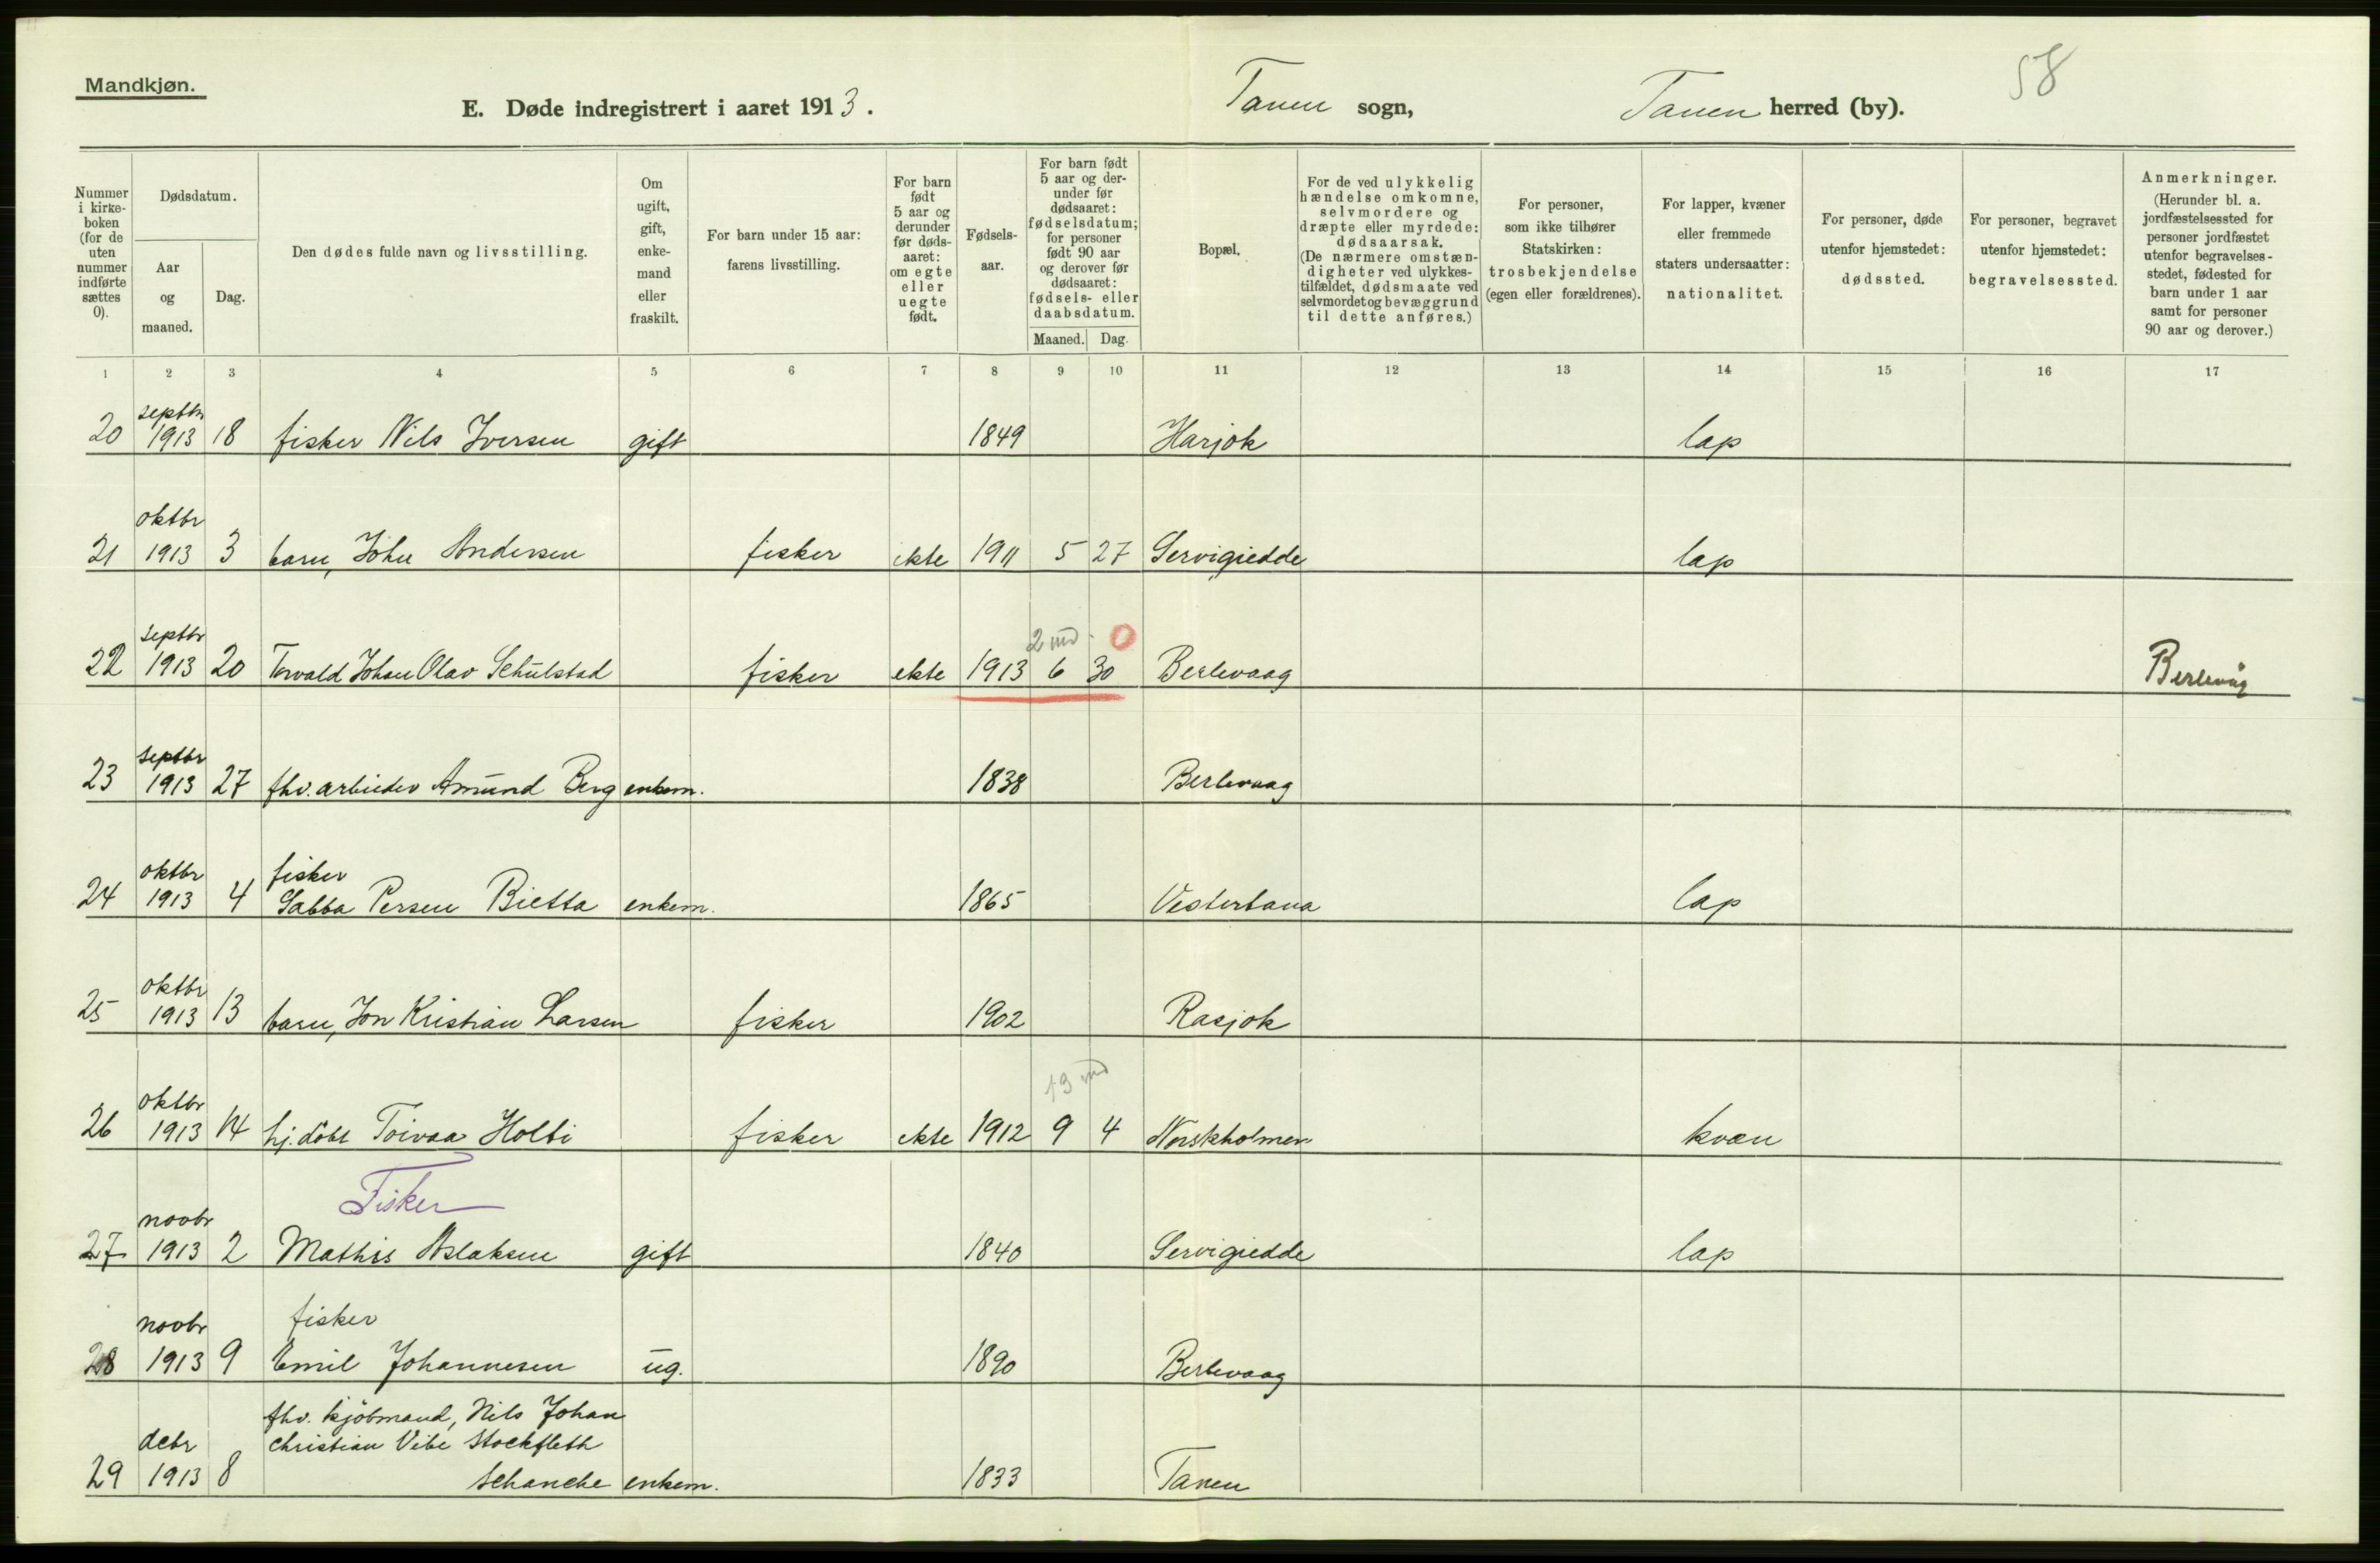 58
Mandkjøn.
E. Døde indregistrert i aaret 1913.
Tanen sogn,
Tanen herred (by).
Nummer i kirke-boken (for de uten nummer indførte sættes 0).
Dødsdatum.
Aar og maaned.
Dag.
Den dødes fulde navn og livsstilling.
Om ugift, gift, enke-mand eller fraskilt.
For barn under 15 aar: farens livsstilling.
For barn født 5 aar og derunder før døds-aaret: om egte eller uegte født.
Fødsels-aar.
For barn født 5 aar og der-under før dødsaaret: fødselsdatum; for personer født 90 aar og derover før dødsaaret: fødsels- eller daabsdatum.
Maaned. Dag.
Bopæl.
For de ved ulykkelig hændelse omkomne, selvmordere og dræpte eller myrdede: dødsaarsak. (De nærmere omstæn-digheter ved ulykkes-tilfældet, dødsmaate ved selvmordet og bevæggrund til dette anføres.)
For personer, som ikke tilhører Statskirken: trosbekjendelse (egen eller forældrenes).
For lapper, kvæner eller fremmede staters undersaatter: nationalitet.
For personer, døde utenfor hjemstedet: dødssted.
For personer, begravet utenfor hjemstedet: begravelsessted.
Anmerkninger. (Herunder bl. a. jordfæstelsessted for personer jordfæstet utenfor begravelses-stedet, fødested for barn under 1 aar samt for personer 90 aar og derover.)
1 2 3 4 5 6 7 8 9 10 11 12 13 14 15 16 17
septbr
20 1913 18 fisker Nils Iversen gift 1849 Harjok lap
oktbr
21 1913 3 barn, John Andersen fisker ekte 1911 5 27 Servigiedde lap
septbr 2 md. 0
22 1913 20 Torvald Johan Olav Schulstad fisker ekte 1913 6 30 Berlevaag Berlevåg
septbr
23 1913 27 fhv. arbieder Amund Berg enkem. 1838 Berlevaag
oktbr fisker
24 1913 4 Sabba Persen Bietta enkem. 1865 Vestertana lap
oktbr
25 1913 13 barn, Jon Kristian Larsen fisker 1902 Rasjok
oktbr 13 md
26 1913 14 hj.døbt Toivaa Holti fisker ekte 1912 9 4 Norskholmen kvæn
novbr Fisker
27 1913 2 Mathis Aslaksen gift 1840 Servigiedde lap
novbr fisker
28 1913 9 Emil Johannesen ug. 1890 Berlevaag
fhv. kjøbmand, Nils Johan
decbr Christian Vibe Stockfleth
29 1913 8 Schanche enkem. 1833 Tanen